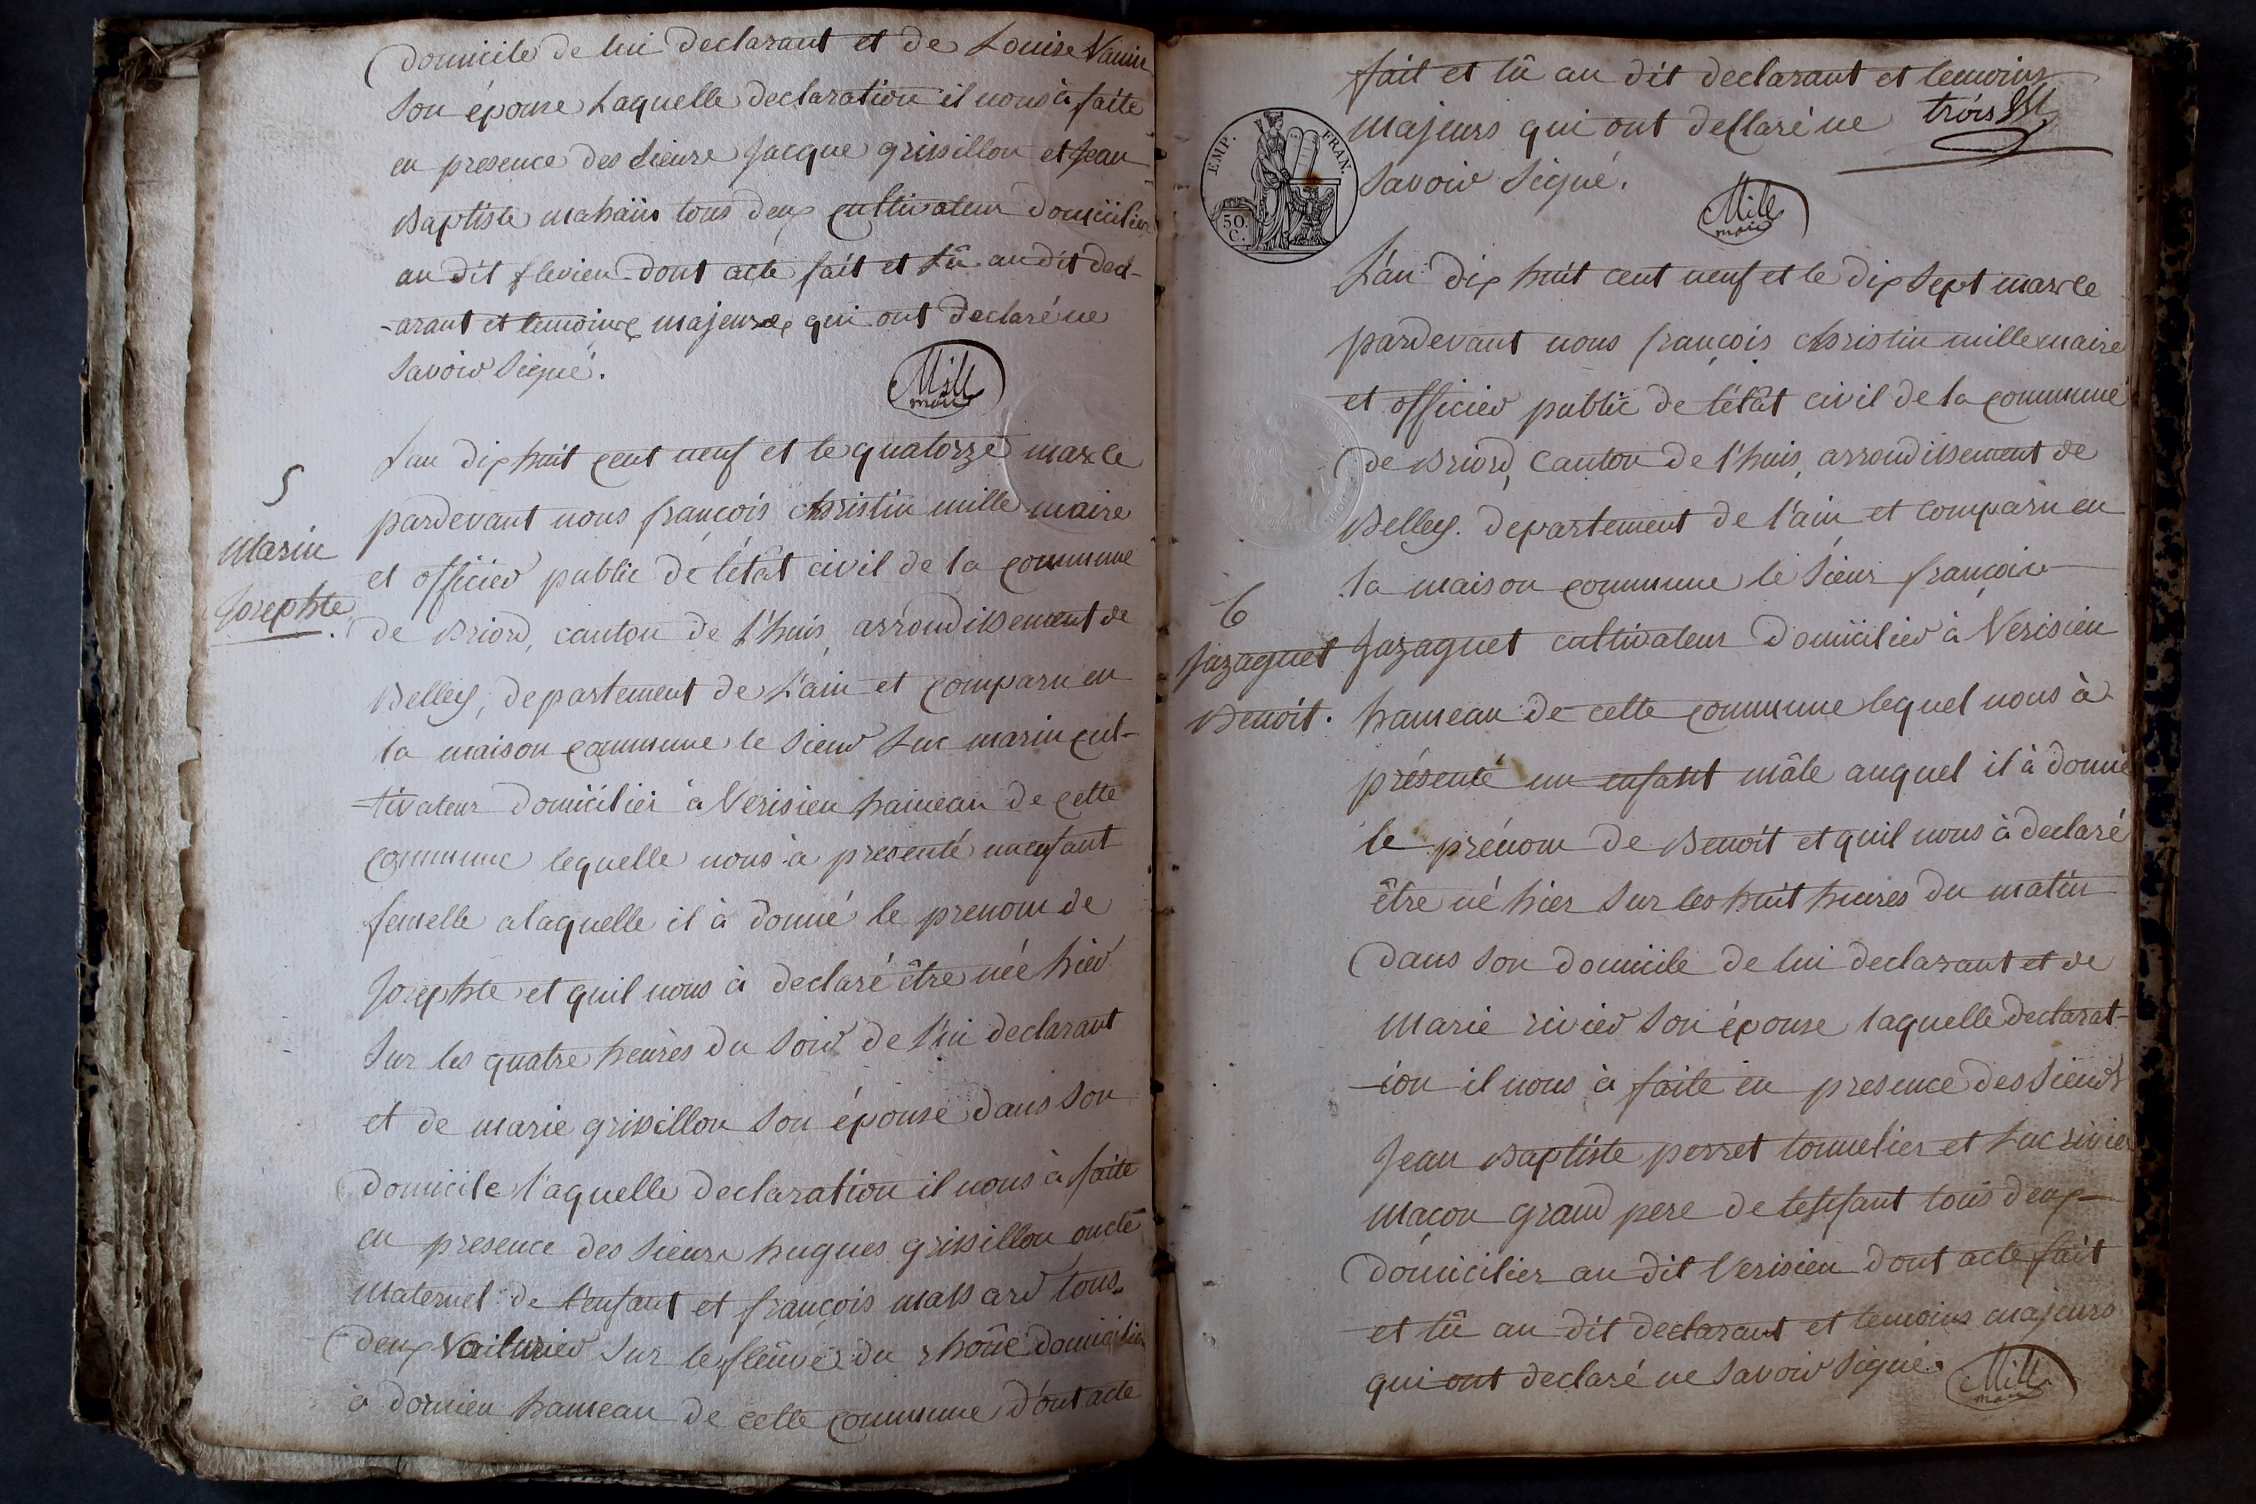 domicile de lui declarant et de Louise Vanin
son épouse Laquelle declaration il nous à faite
en presence des Sieurs Jacque grissillon et Jean
Baptiste mahaiis tous deux cultivateur domicilier
au dit flevieu dont acte fait et Lû au dit decl-
-arant et temoins majeurs qui ont declaré ne
savoir signé.
Mille
maire
L'an dix huit cent neuf et le quatorze mars le
5
pardevant nous françois christin mille maire
Marin
et officier public de l'état civil de la commune
Josephte
de Briord, canton de l'huis, arrondissement de
Belley, departement de L'ain et comparu en
la maison commune le Sieur Luc marin cul-
-tivateur domicilier à Verisieu hameau de cette
commune lequelle nous à presenté un enfant
femelle a laquelle il à donné le prenom de
Josephte et quil nous à declaré être née hier
sur les quatre heures du soir de lui declarant
et de marie grissillon son épouse dans son
domicile laquelle declaration il nous à faite
en presence des Sieurs hugues grissillon oncle
maternel de l'enfant et françois massard tous
deux Voiturier sur le fleûve du rhône domicilier
à dornieu hameau de cette commune dont acte
fait et lû au dit declarant et temoins
majeurs qui ont declaré ne trois
savoir signé.
EMP. FRAN.
50.
C.
Mille
maire
L'an dix huit cent neuf et le dix sept mars le
pardevant nous françois christin mille maire
et officier public de l'état civil de la commune
de Briord, Canton de l'huis, arrondissement de
Belley. departement de l'ain et comparu en
la maison commune le Sieur françois
6
Jazaguet
Jazaguet cultivateur domicilier à Verisieu
Benoit.
hameau de cette commune lequel nous à
présenté un enfant mâle auquel il à donné
le prénom de Benoit et quil nous à declaré
être né hier sur les huit heures du matin
dans son domicile de lui declarant et de
Marie rivier son épouse laquelle declarat-
-ion il nous à faite en presence des Sieurs
Jean Baptiste perret tonnelier et Luc rivier
maçon grand pere de l'enfant tous deux
domicilier au dit Verisieu dont acte fait
et lû au dit declarant et temoins majeurs
qui ont declaré ne savoir signé.
Mille
maire